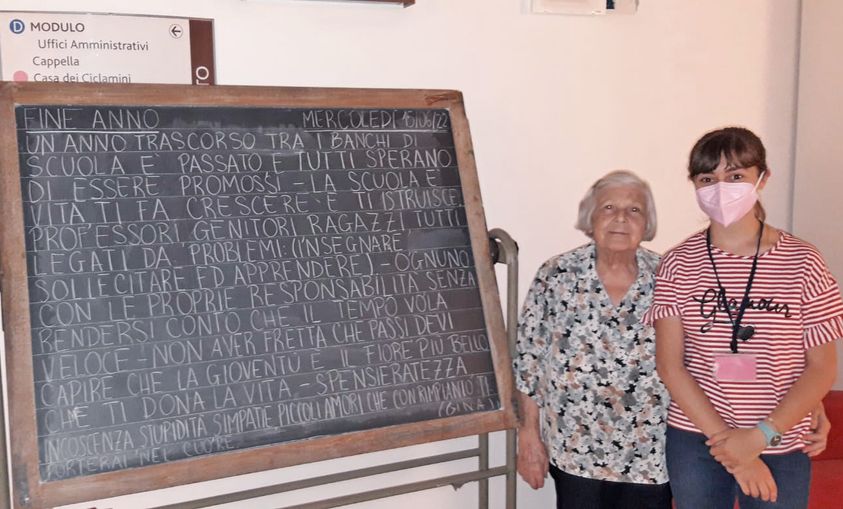 D MODULO
Uffici Amministrativi
Cappella
Casa dei Ciclamini
FINE ANNO MERCOLEDÌ 15/06/22
UN ANNO TRASCORSO TRA I BANCHI DI
SCUOLA E' PASSATO E TUTTI SPERANO
DI ESSERE PROMOSSI - LA SCUOLA E'
VITA TI FA CRESCERE E TI ISTRUISCE.
PROFESSORI GENITORI RAGAZZI TUTTI
LEGATI DA PROBLEMI: (INSEGNARE
SOLLECITARE ED APPRENDERE) - OGNUNO
CON LE PROPRIE RESPONSABILITÀ SENZA
RENDERSI CONTO CHE IL TEMPO VOLA
VELOCE - NON AVER FRETTA CHE PASSI DEVI
CAPIRE CHE LA GIOVENTÙ E' IL FIORE PIÙ BELLO
CHE TI DONA LA VITA - SPENSIERATEZZA
INCOSCENZA STUPIDITÀ SIMPATIE PICCOLI AMORI CHE CON RIMPIANTO TI
PORTERAI NEL CUORE (GINA)
Glamour